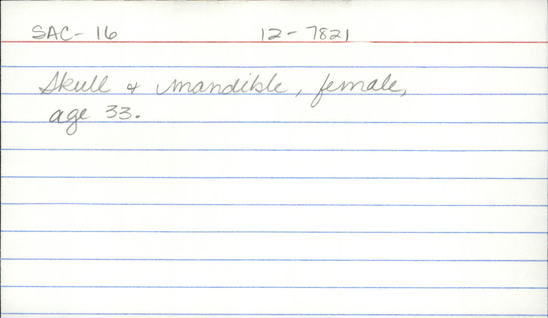 SAC-16 12-7821
Skull & mandible, female,
age 33.